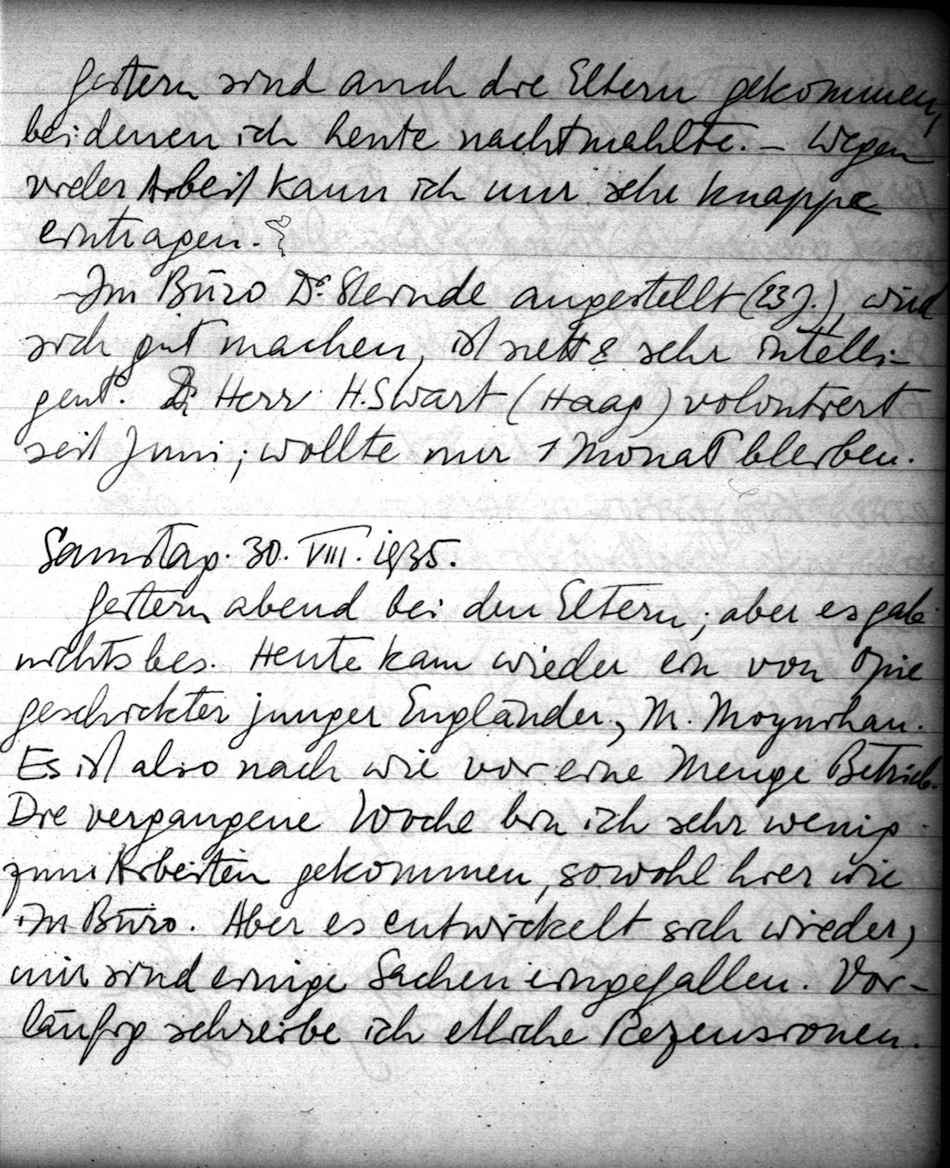 Gestern sind auch die Eltern gekommen,
bei denen ich heute nachtmahlte. – Wegen
vieler Arbeit kann ich nur sehr knappe
eintragen.
– Im Büro Dr. Steindl angestellt (23 J.), wird
sich gut machen, ist nett & sehr intelli-
gent. Herr H. Swart (Haag) volontiert
seit Juni; wollte nur 1 Monat bleiben.
Samstag. 30. VIII. 1935.
Gestern abend bei den Eltern; aber es gab
nichts bes. Heute kam wieder ein von Opie
geschickter junger Engländer, M. Moynihan.
Es ist also nach wie vor eine Menge Betrieb.
Die vergangene Woche bin ich sehr wenig
zum Arbeiten gekommen, sowohl hier wie
im Büro. Aber es entwickelt sich wieder,
mir sind einige Sachen eingefallen. Vor-
läufig schreibe ich etliche Rezensionen.